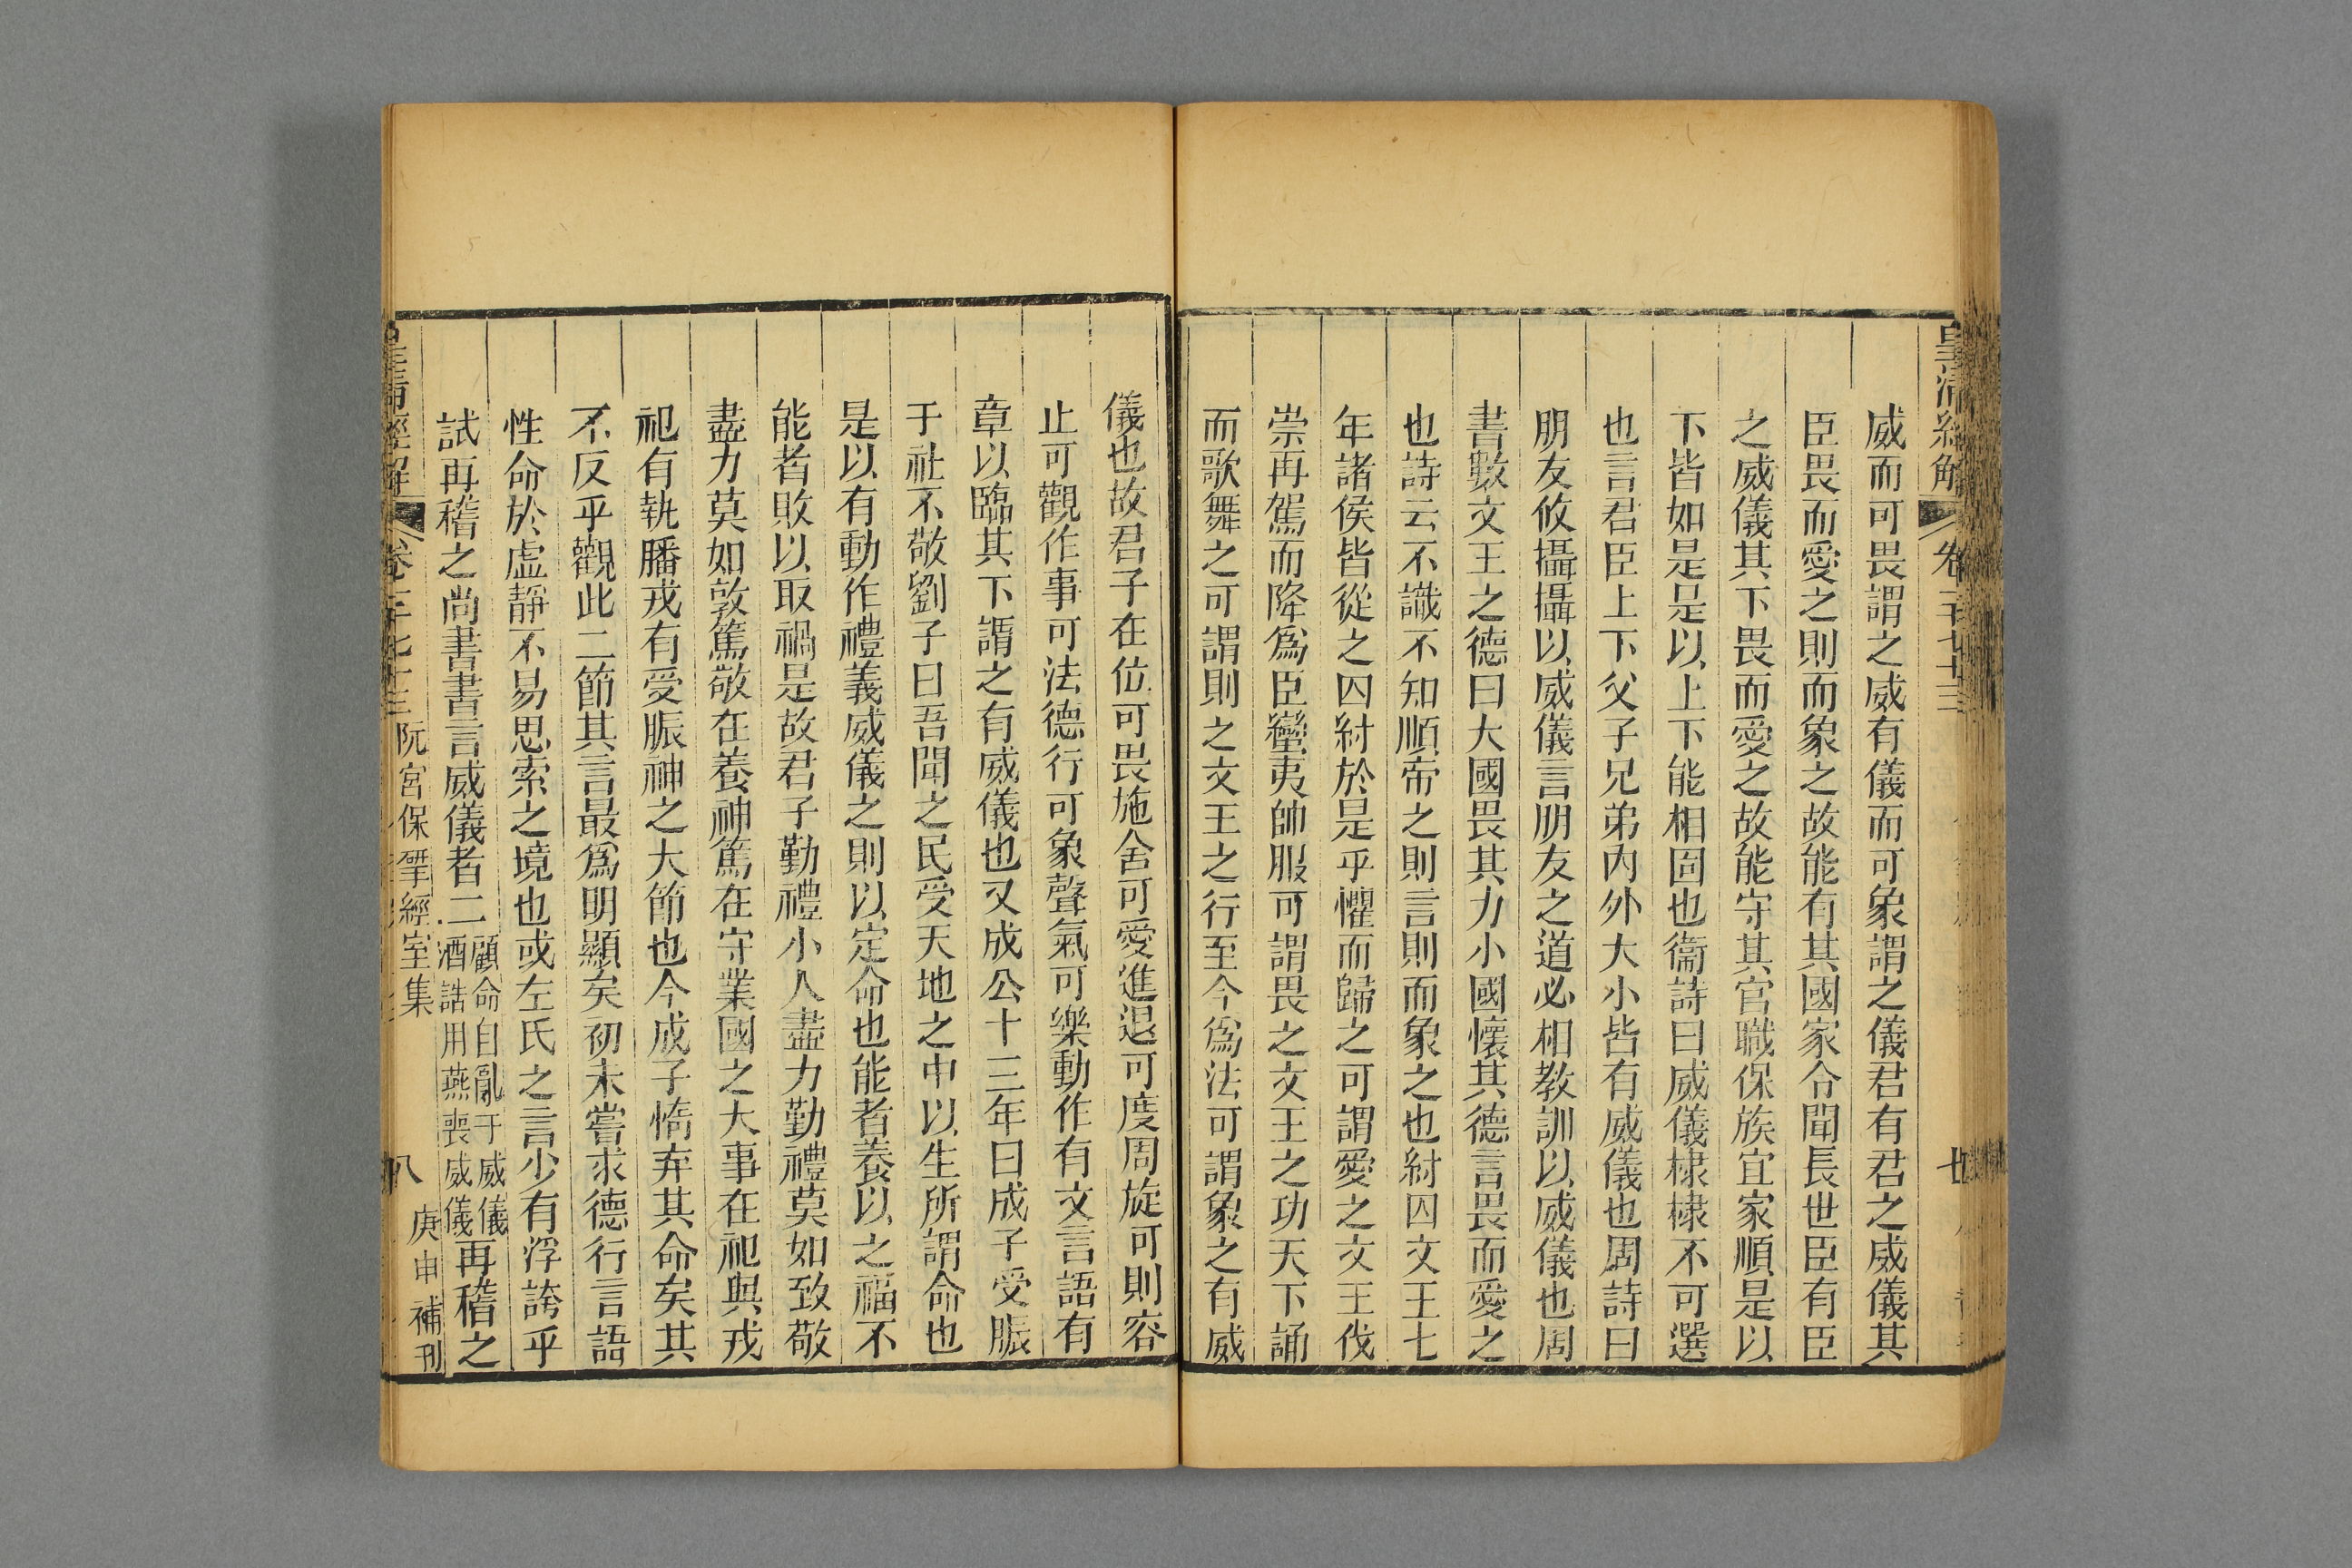 皇清經解
卷千七十三
威而可畏謂之威有儀而可象謂之儀君有君之威儀其
臣畏而愛之則而象之故能有其國家令聞長世臣有臣
之威儀其下畏而愛之故能守其官職保族宜家順是以
下皆如是是以上下能相固也衞詩曰威儀棣棣不可選
也言君臣上下父子兄弟內外大小皆有威儀也周詩曰
朋友攸攝攝以威儀言朋友之道必相教訓以威儀也周
書數文王之德曰大國畏其力小國懷其德言畏而愛之
也詩云不識不知順帝之則言則而象之也紂囚文王七
年諸侯皆從之囚紂於是乎懼而歸之可謂愛之文王伐
崇再駕而降爲臣蠻夷帥服可謂畏之文王之功天下誦
而歌舞之可謂則之文王之行至今爲法可謂象之有威
儀也故君子在位可畏施舍可愛進退可度周旋可則容
止可觀作事可法德行可象聲氣可樂動作有文言語有
章以臨其下謂之有威儀也又成公十三年曰成子受脤
于社不敬劉子曰吾聞之民受天地之中以生所謂命也
是以有動作禮義威儀之則以定命也能者養以之福不
能者敗以取禍是故君子勤禮小人盡力勤禮莫如致敬
盡力莫如敦篤敬在養神篤在守業國之大事在祀與戎
祀有執膰戎有受脤神之大節也今成子惰弃其命矣其
不反乎觀此二節其言最爲明顯矣初未嘗求德行言語
性命於虛靜不易思索之境也或左氏之言少有浮誇乎
試再稽之尚書書言威儀者二顧命自亂于威儀酒誥用燕喪威儀再稽之
皇清經解
卷千七十三
阮宮保揅經室集
八
庚申補刊